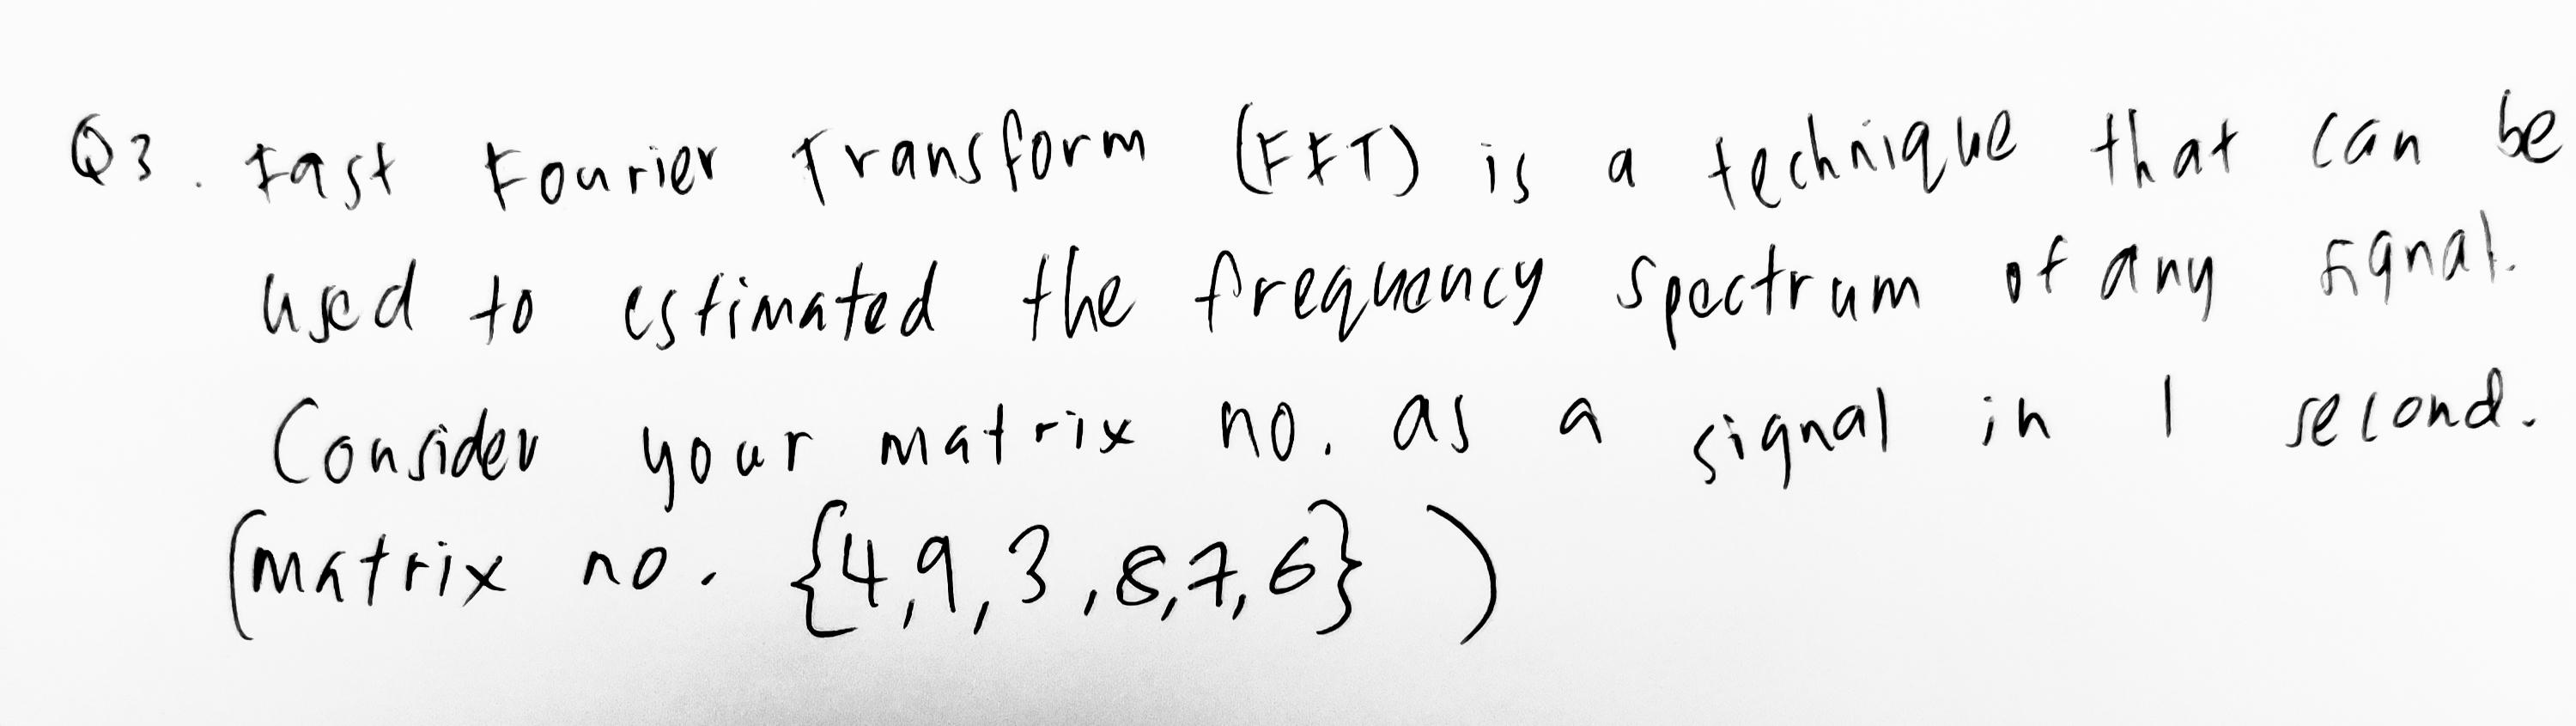 Q3. Fast Fourier Transform (FFT) is a technique that can be
used to estimated the frequency spectrum of any signal.
Consider your matrix no. as a signal in 1 second.
(matrix no. {4,9,3,8,7,6} )